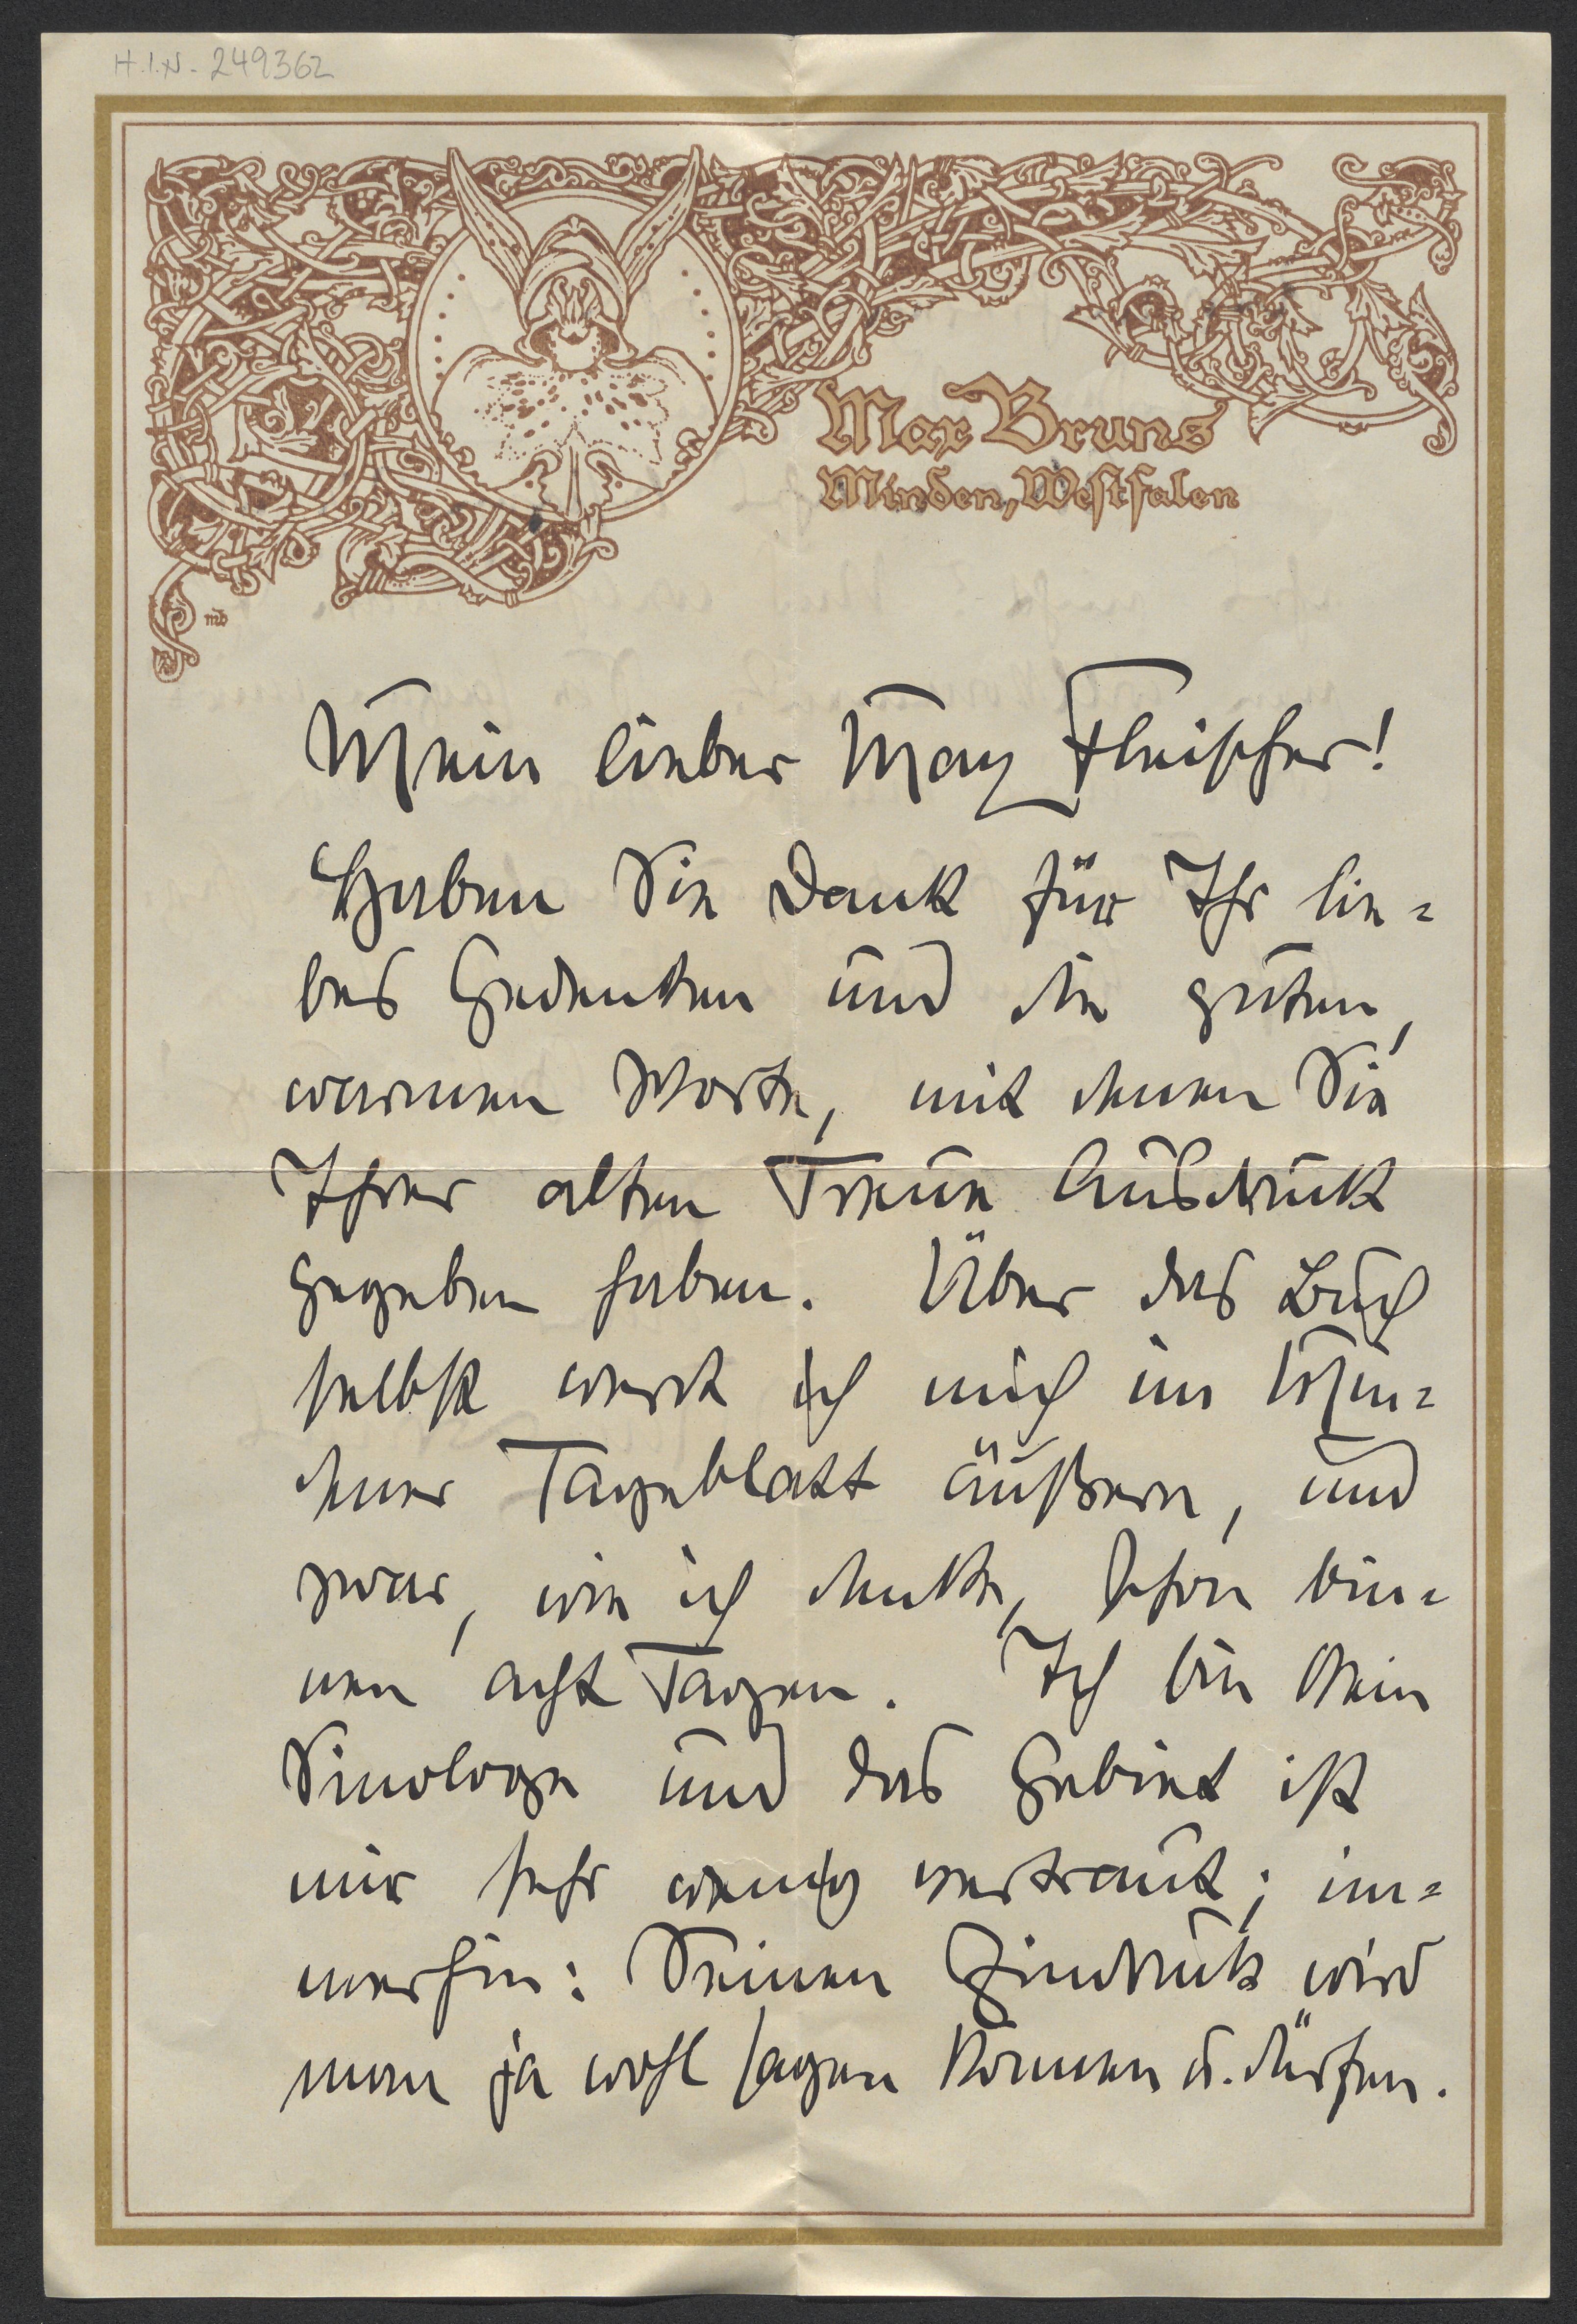 H.I.N. - 249362
Max Bruns
Minden, Westfalen
mb
Mein lieber Max Fleischer!
Haben Sie Dank für Ihr lie=
bes Gedenken und die guten,
warmen Worte, mit denen Sie
Ihrer alten Treue Ausdruck
gegeben haben. Über das Buch
selbst werde ich mich im Min=
dener Tageblatt äußern, und
zwar, wie ich denke, schon bin=
nen acht Tagen. Ich bin kein
Sinologe und das Gebiet ist
mir sehr wenig vertraut; im=
merhin: Seinen Eindruck wird
man ja wohl sagen können u. dürfen.